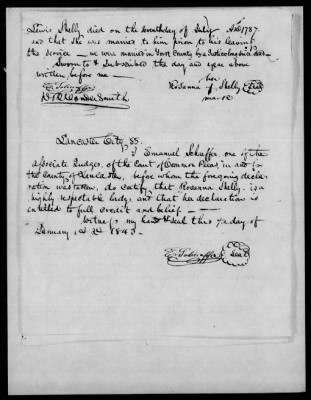 Lewis Shelly died on the seventh day of July A.D. 1787
and that she was married to him prior to his leaving
the service — we were married in York County by a
Sworn to & Subscribed the day and year above
written, before me —
her
Rosanna Shelly Seal
mark
E. Schaeffer
Lancaster City SS.
I Emanuel Schaffer, one of the
associate Judges, of the Court of Common Pleas in and for
the County of Lancaster, before whom the foregoing decla-
ration was taken, do certify, that Rosanna Shelly, is a
highly respectable lady, and that her declaration is
entitled to full credit and belief —
Witness my hand & seal this day of
January, A.D. 1843.
E. Schaeffer Seal